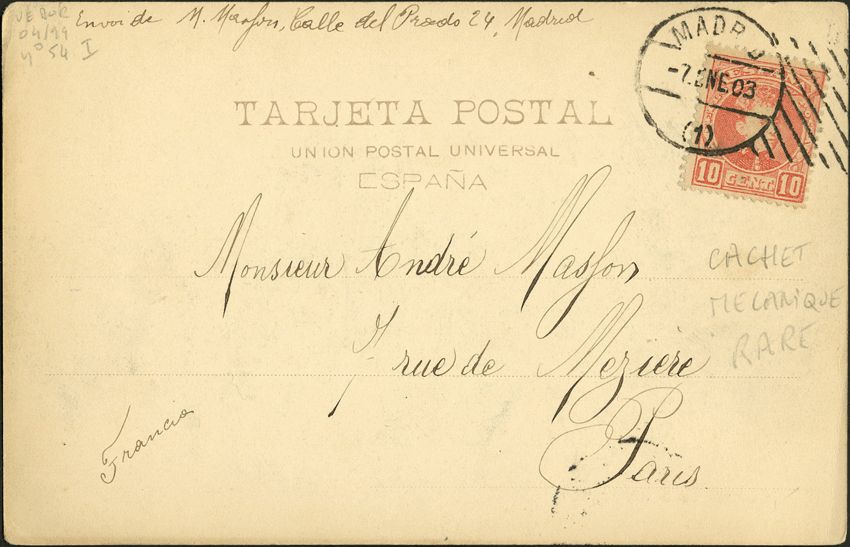 Envoi de M. Masson, Calle del Prado 24, Madrid
04/99
nº 54 I
MADRID
-7.ENE.03
(1)
TARJETA POSTAL
UNION POSTAL UNIVERSAL
ESPAÑA
10 CENT. 10
Monsieur André Masson
7 rue de Mezière
Paris
Francia
CACHET
MECANIQUE
RARE